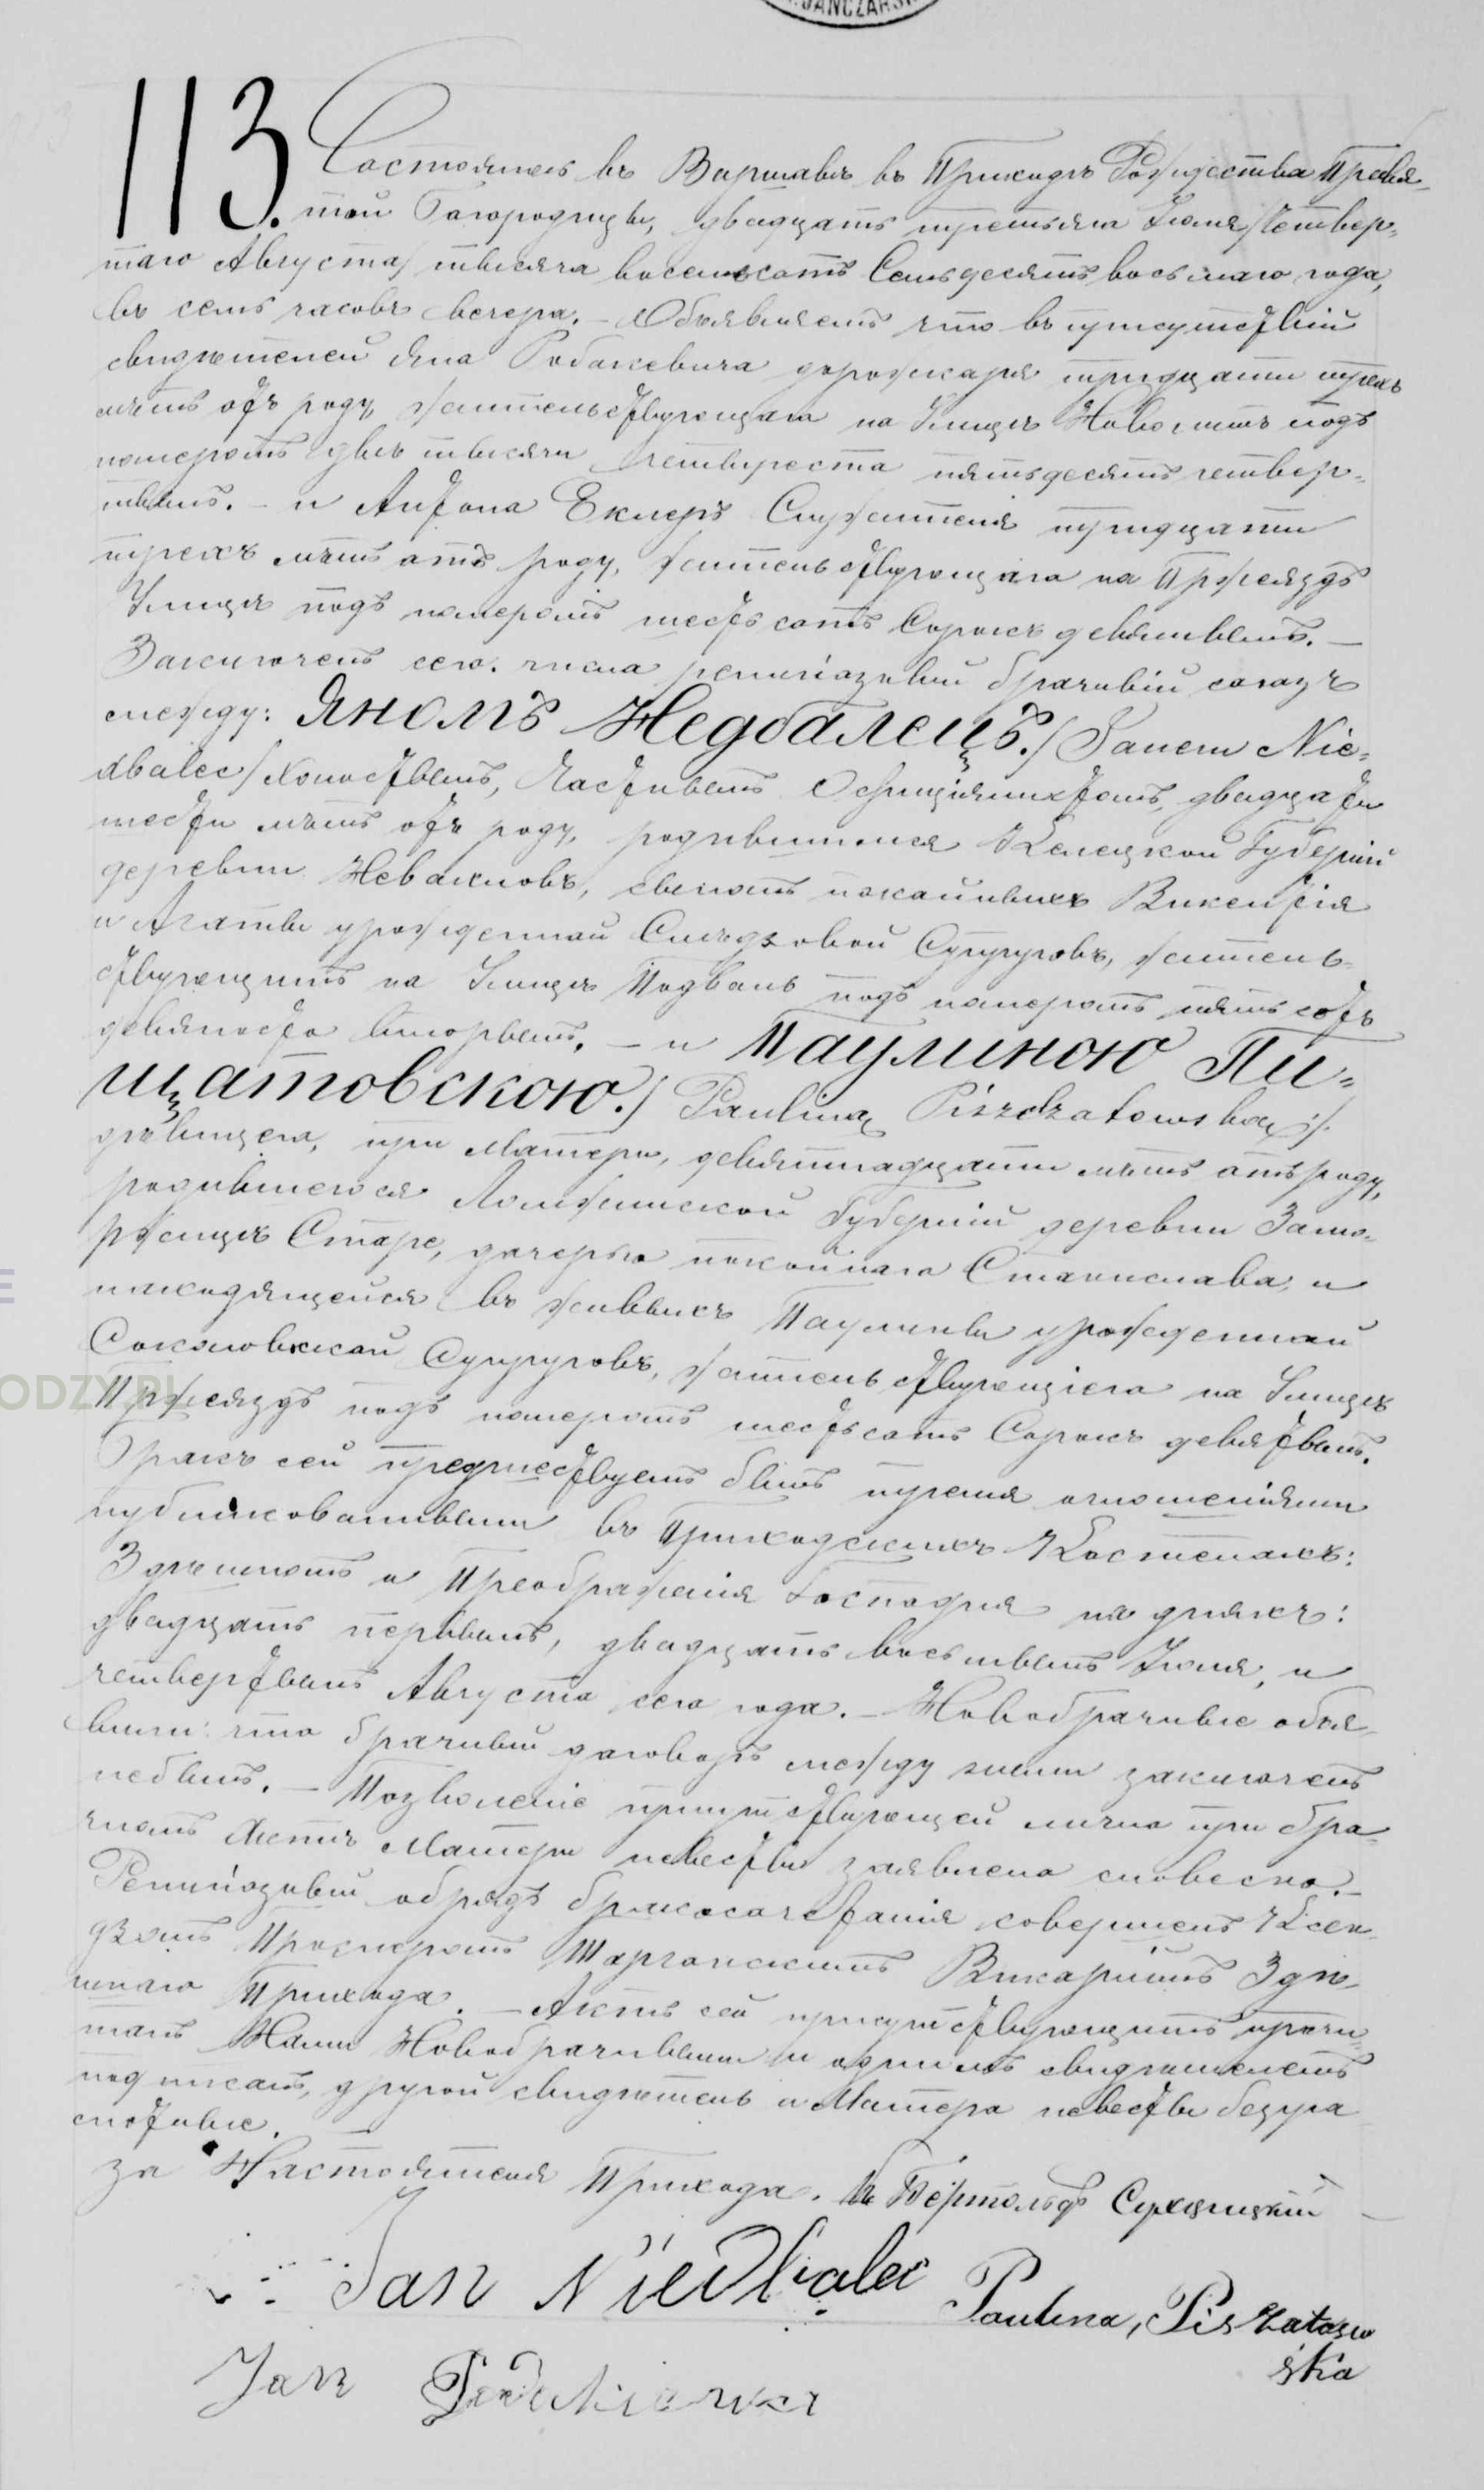 JANCZARSK
113. Состоялось въ Варшавѣ въ Приходѣ Рождества Пресвя-
той Богородицы, двадцать третьяго Іюля /Четвер-
таго Августа/ тысяча восемьсотъ Семьдесятъ восьмаго года,
въ семь часовъ вечера. – Объявляемъ что въ присутствіи
свидѣтелей Яна Робакевича дорожкаря тридцати трехъ
лѣтъ отъ роду, жительствующаго на Улицѣ Новолипѣ подъ
номеромъ двѣ тысячи четыреста пятьдесятъ четвер-
тымъ. – и Антона Екперъ Служителя тридцати
трехъ лѣтъ отъ роду, жительствующаго на Пржеяздъ
Улицѣ подъ номеромъ шестьсотъ Сорокъ девятымъ. –
Заключенъ сего числа религіозный брачный союзъ
между: Яномъ Недбалецъ./ Janem Nie-
dbalec/ Холостымъ, Частнымъ Оффиціялистомъ, двадцати
шести лѣтъ отъ роду, родившимся Келецкой Губерніи
деревни Неваховъ, сыномъ покойныхъ Викентія
и Агаты урожденной Следзовой Супруговъ, житель-
ствующимъ на Улицѣ Подваль подъ номеромъ пятьсотъ
девяносто вторымъ. – и Паулиною Пи-
щатовскою./ Pauliną Piszczatowską /.
дѣвицею, при Матери, девятнадцати лѣтъ отъ роду,
родившеюся Ломжинской Губерніи деревни Замо-
ржице Старе, дочерью покойнаго Станислава, и
находящейся въ живыхъ Паулины урожденной
Соколовской Супруговъ, жительствующею на Улицѣ
Пржеяздъ подъ номеромъ шестьсотъ Сорокъ девятымъ.
Бракъ сей предшествуемъ былъ тремя оглошеніями
публикованными въ Приходскихъ Костелахъ:
Здѣшномъ и Преображенія Господня на дняхъ:
двадцать первымъ, двадцать восьмымъ Іюля, и
четвертымъ Августа сего года. – Новобрачные объя-
вили: что брачный договоръ между ними заключенъ
небылъ. – Позволеніе присутствующей лично при бра-
чномъ Актѣ Матери невесты заявлено словесно. –
Религіозный обрядъ бракосочетанія совершенъ Ксен-
дзомъ Просперомъ Шаргонскимъ Викаріимъ Здѣ-
шнаго Прихода. – Актъ сей присутствующимъ прочи-
танъ Нами Новобрачными и однимъ свидѣтелемъ
подписанъ, другой свидѣтель и Матера невесты безгра-
мотные.
за Настоятеля Прихода. Кс Бертольдъ
Jan Niedbalec
Paulina, Piszatow
ska
Jan